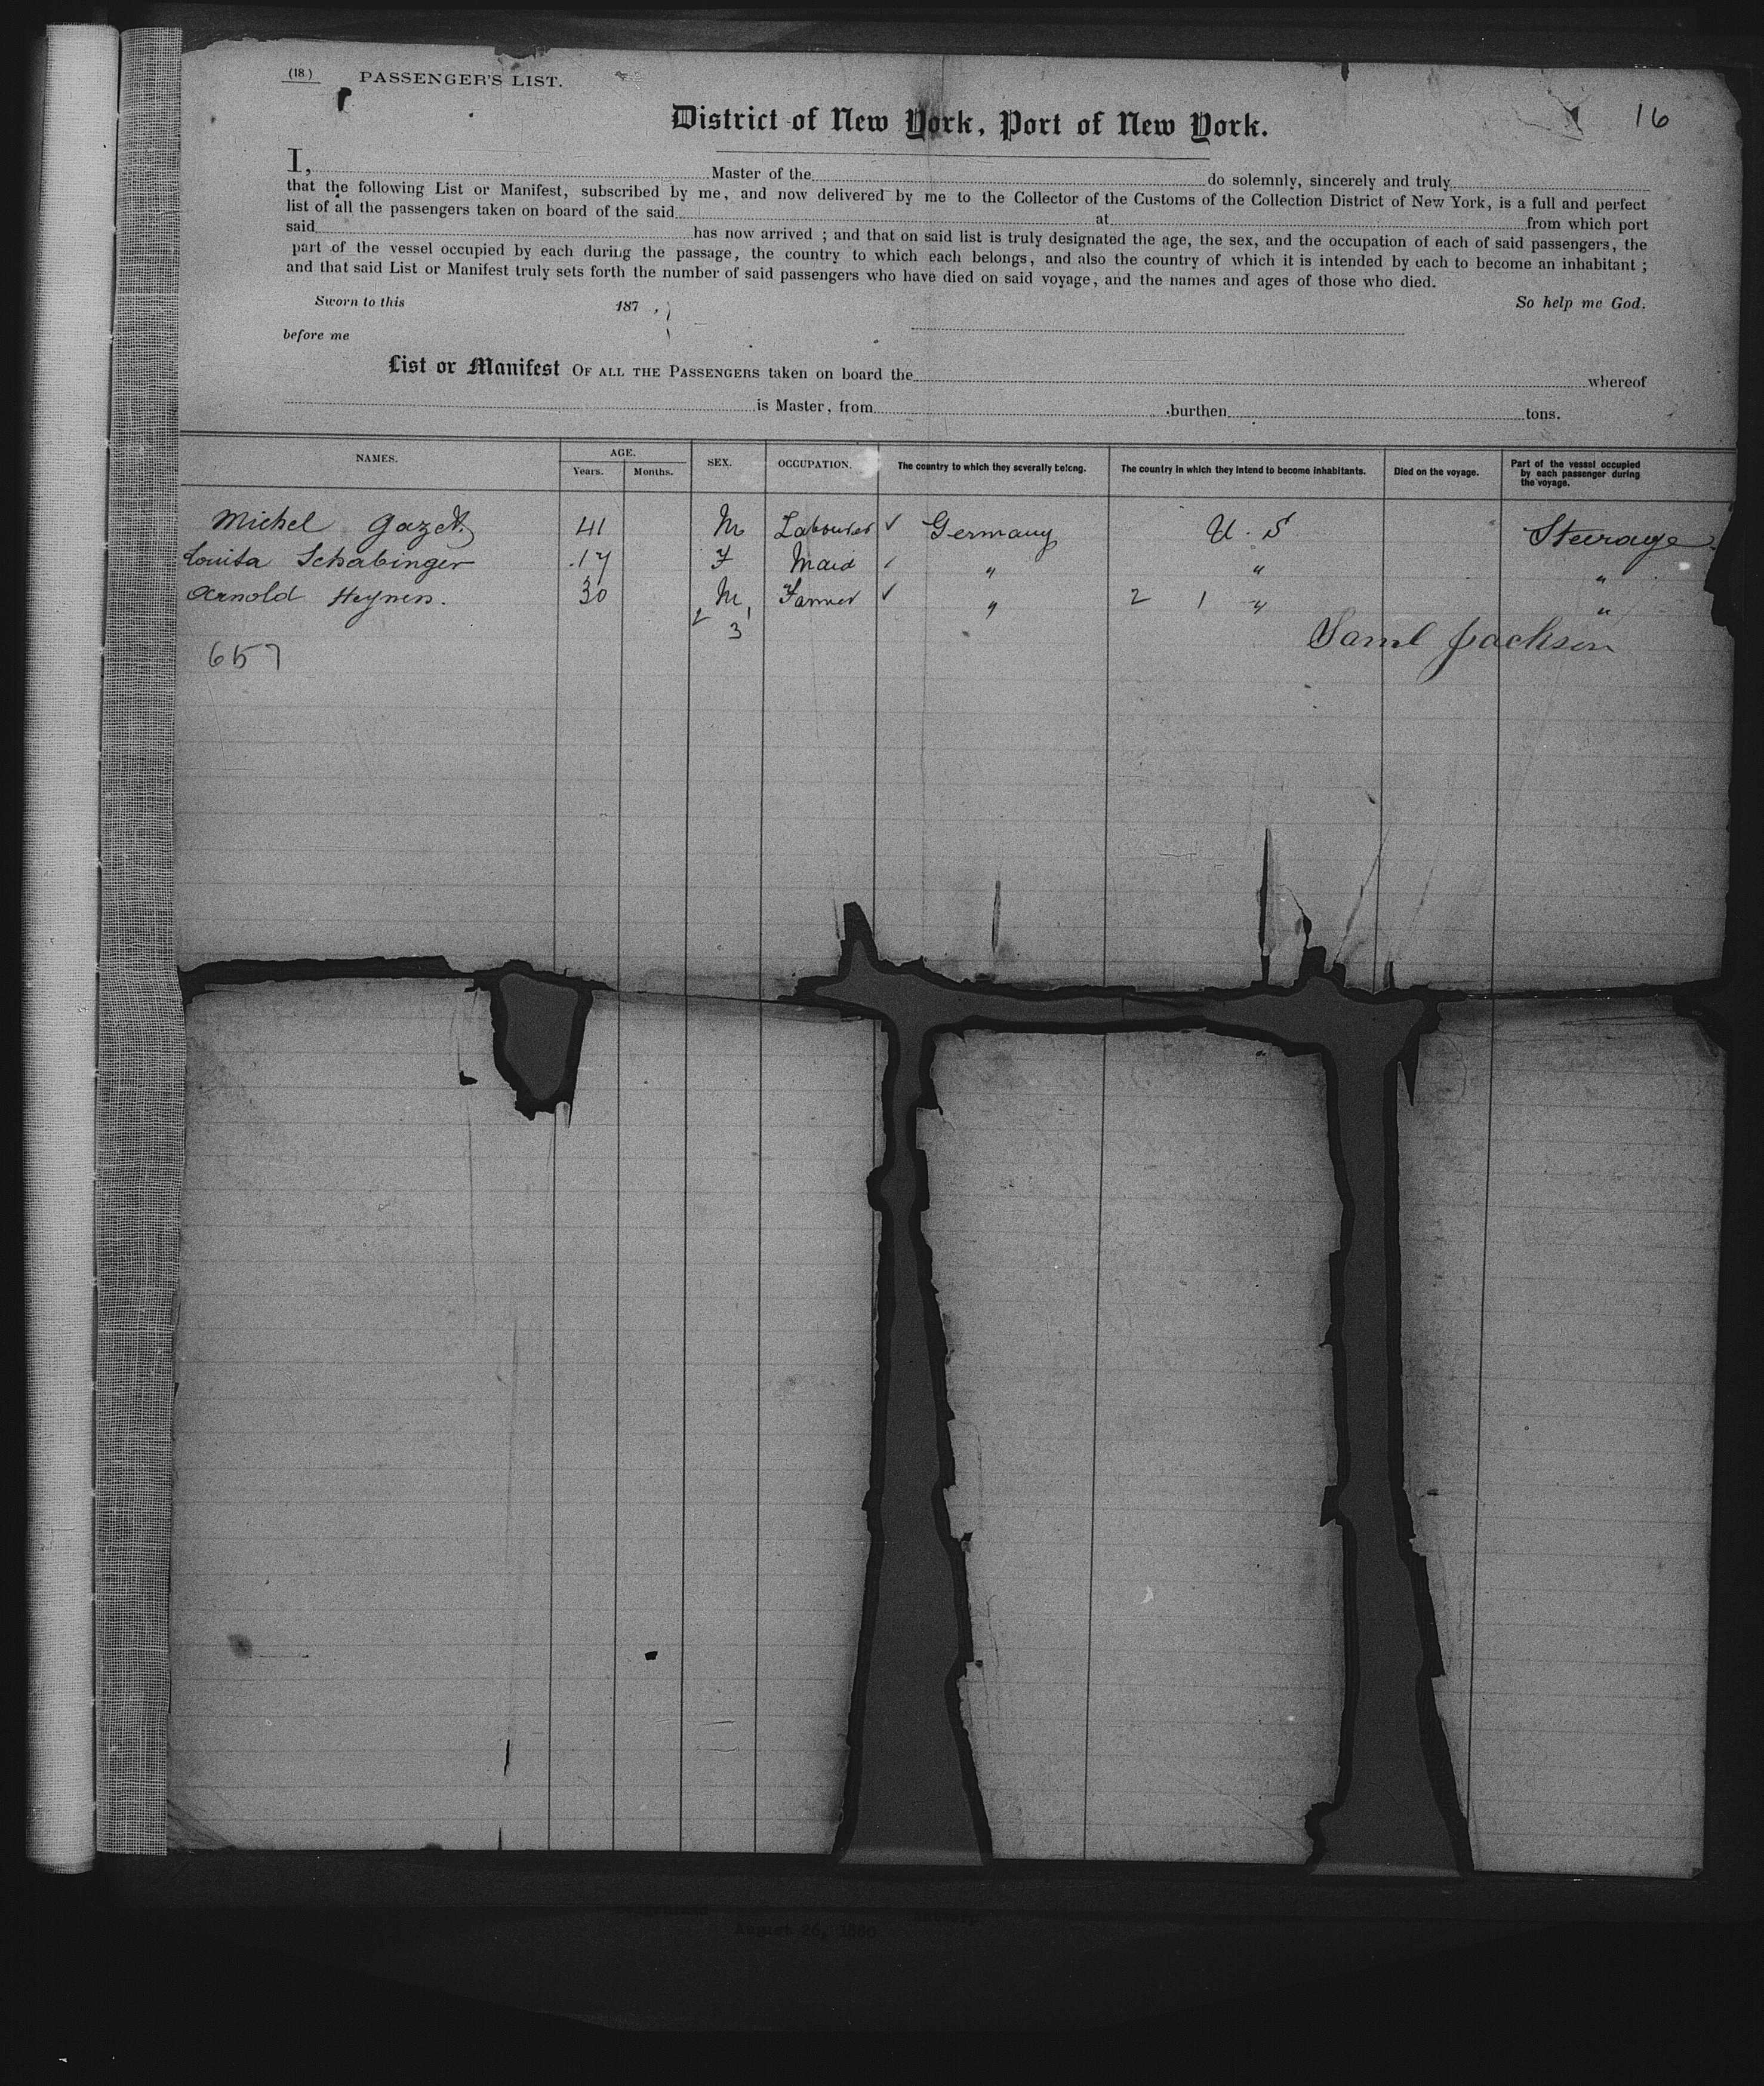 (18.) PASSENGER'S LIST.
16
District of New York, Port of New York.
I, Master of the do solemnly, sincerely and truly
that the following List or Manifest, subscribed by me, and now delivered by me to the Collector of the Customs of the Collection District of New York, is a full and perfect
list of all the passengers taken on board of the said at from which port
said has now arrived ; and that on said list is truly designated the age, the sex, and the occupation of each of said passengers, the
part of the vessel occupied by each during the passage, the country to which each belongs, and also the country of which it is intended by each to become an inhabitant ;
and that said List or Manifest truly sets forth the number of said passengers who have died on said voyage, and the names and ages of those who died.
Sworn to this 187 , So help me God.
before me
List or Manifest OF ALL THE PASSENGERS taken on board the whereof
is Master, from burthen tons.
NAMES. AGE. Years. Months. SEX. OCCUPATION. The country to which they severally belong. The country in which they intend to become inhabitants. Died on the voyage. Part of the vessel occupied by each passenger during the voyage.
Michel 41 M Labourer ✓ Germany U. S Steerage
Louisa Schabinger 17 F Maid ✓ " " "
Arnold Heynen. 30 M Farmer ✓ " 2 1 " "
2 1
3
657 Saml Jackson
August 26, 1880